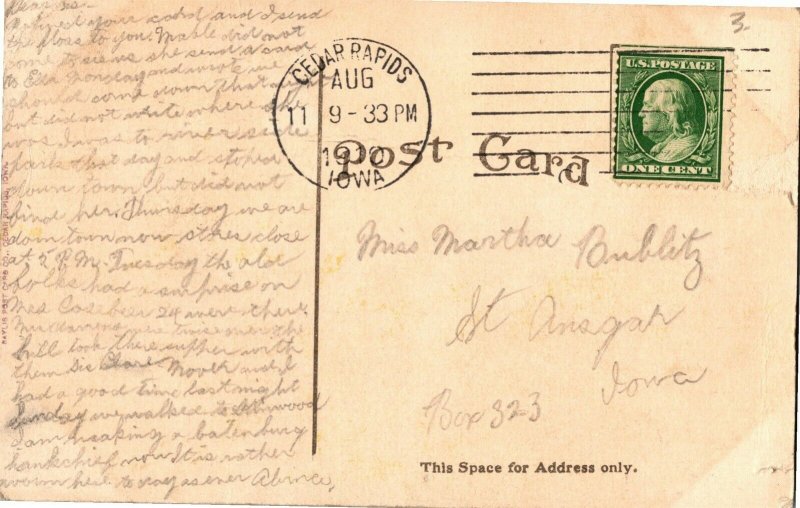 Dear Sis.
Received your card and I send
the floss to you. Mable did not
come to see us she send a card
to Ella Monday and wrote we
should come down that
but did not write where she
was I was to river side
park that day and stoped
down town but did not
find her. Thursday we are
down town now stores close
at 5 P.M. Tuesday the old
folks had a surprise on
Mrs Casebeer 24 were there.
were twise over the
hill took there supper with
them Sis Clare and I
had a good time last night
Sunday we walked to
I am making a batenburg
hankchief now It is rather
worm here to day as ever
CEDAR RAPIDS
AUG
11 9-33 PM
1910
IOWA
Post Card
U.S. POSTAGE
ONE CENT
3.
Miss Martha Bublitz
St Ansgar
Iowa
Box 323
This Space for Address only.